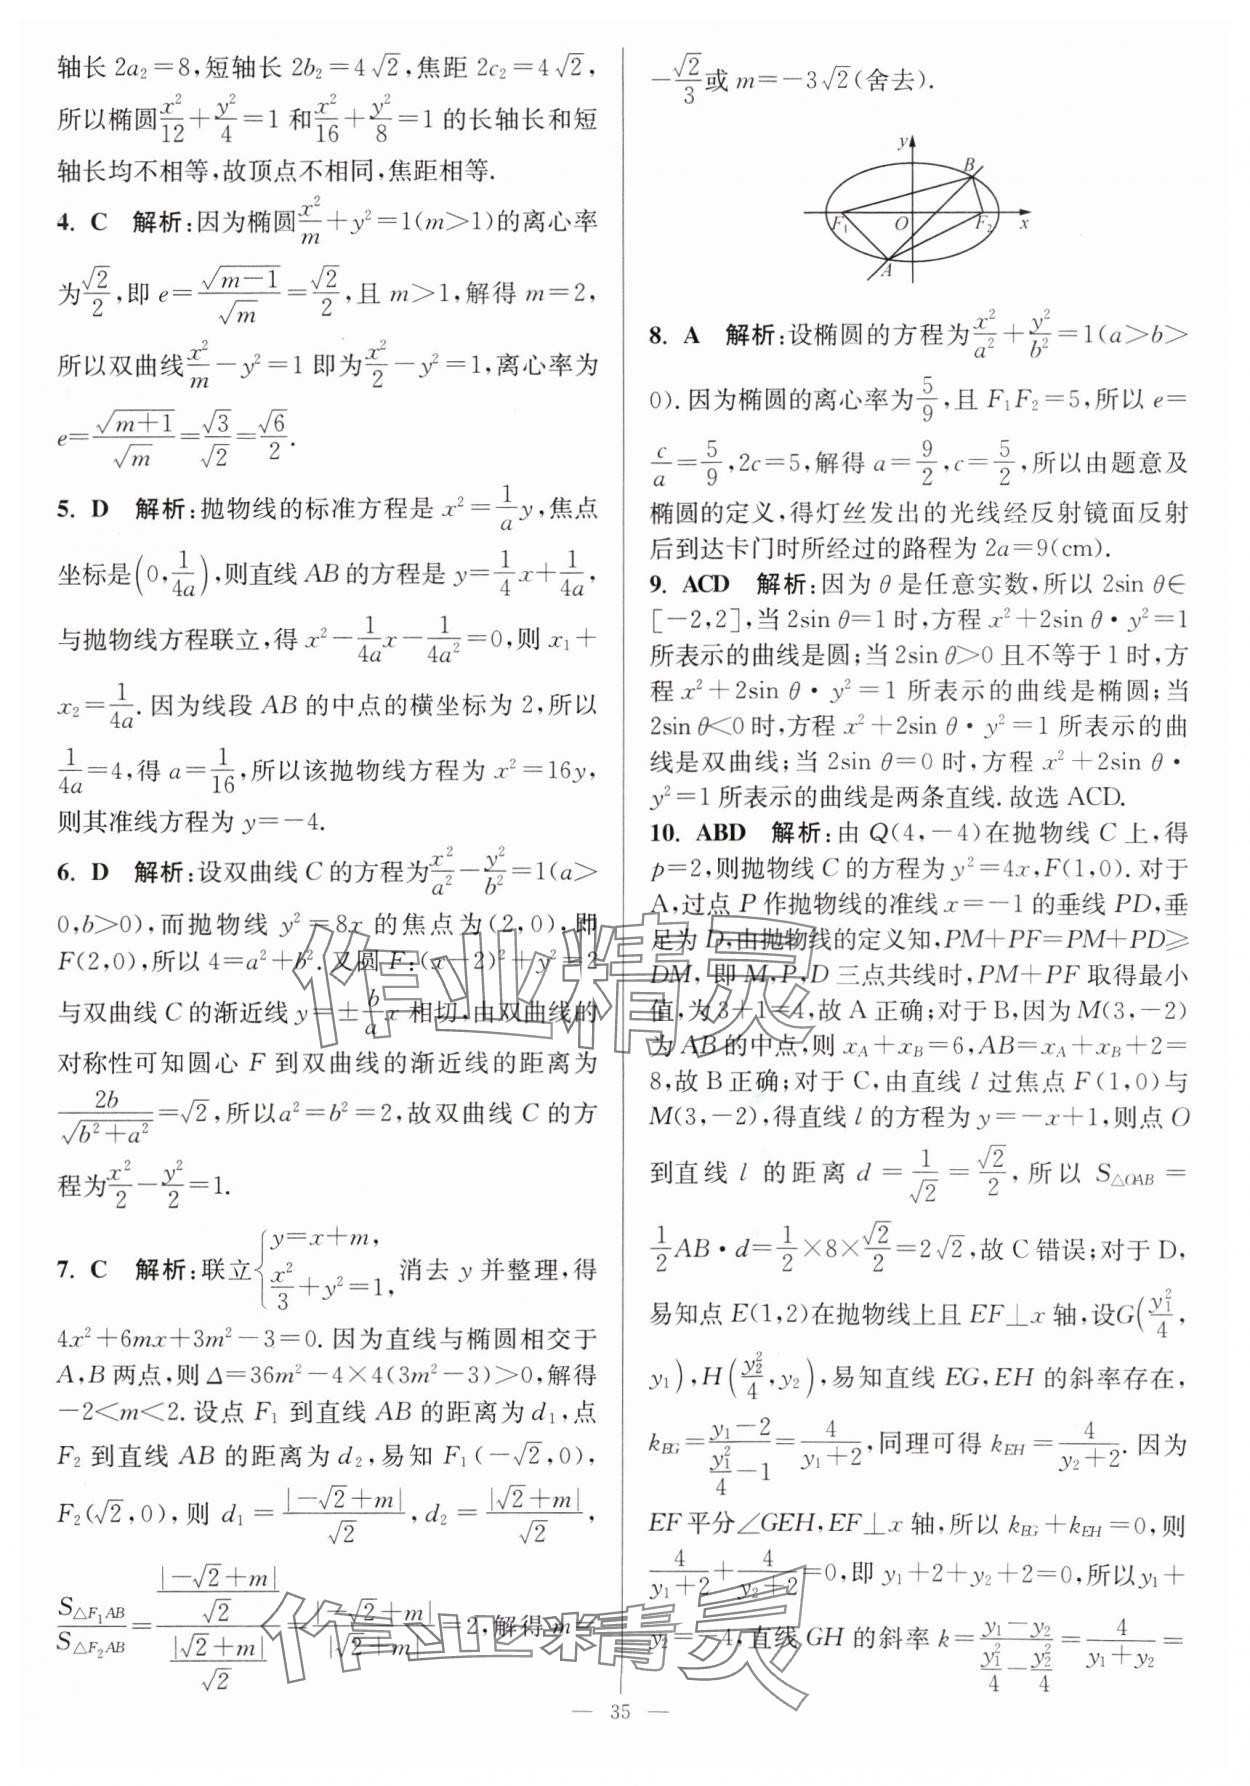 轴长 2a₂=8,短轴长 2b₂=4√2,焦距 2c₂=4√2,
所以椭圆x²/12+y²/4=1 和x²/16+y²/8=1 的长轴长和短
轴长均不相等,故顶点不相同,焦距相等.
4. C 解析:因为椭圆x²/m+y²=1(m>1)的离心率
为√2/2,即 e=√(m-1)/√m=√2/2,且 m>1,解得 m=2,
所以双曲线x²/m-y²=1 即为x²/2-y²=1,离心率为
e=√(m+1)/√m=√3/√2=√6/2.
5. D 解析:抛物线的标准方程是 x²=(1/a)y,焦点
坐标是(0,1/4a),则直线 AB 的方程是 y=(1/4)x+1/4a,
与抛物线方程联立,得 x²-(1/4a)x-1/4a²=0,则 x₁+
x₂=1/4a.因为线段 AB 的中点的横坐标为 2,所以
1/4a=4,得 a=1/16,所以该抛物线方程为 x²=16y,
则其准线方程为 y=-4.
6. D 解析:设双曲线 C 的方程为x²/a²-y²/b²=1(a>
0,b>0),而抛物线 y²=8x 的焦点为(2,0),即
F(2,0),所以 4=a²+b².又圆 F:(x-2)²+y²=2
与双曲线 C 的渐近线 y=±(b/a)x 相切,由双曲线的
对称性可知圆心 F 到双曲线的渐近线的距离为
2b/√(b²+a²)=√2,所以a²=b²=2,故双曲线 C 的方
程为x²/2-y²/2=1.
7. C 解析:联立{y=x+m, x²/3+y²=1, 消去 y 并整理,得
4x²+6mx+3m²-3=0.因为直线与椭圆相交于
A,B 两点,则 Δ=36m²-4×4(3m²-3)>0,解得
-2<m<2.设点 F₁ 到直线 AB 的距离为 d₁,点
F₂ 到直线 AB 的距离为 d₂,易知 F₁(-√2,0),
F₂(√2,0),则 d₁=|-√2+m|/√2,d₂=|√2+m|/√2,
S△F₁AB/S△F₂AB=(|-√2+m|/√2)/(|√2+m|/√2)=|-√2+m|/|√2+m|=2,解得 m=
-√2/3或 m=-3√2(舍去).
y
B
F₁ O F₂ x
A
8. A 解析:设椭圆的方程为x²/a²+y²/b²=1(a>b>
0).因为椭圆的离心率为5/9,且 F₁F₂=5,所以 e=
c/a=5/9,2c=5,解得 a=9/2,c=5/2,所以由题意及
椭圆的定义,得灯丝发出的光线经反射镜面反射
后到达卡门时所经过的路程为 2a=9(cm).
9. ACD 解析:因为 θ 是任意实数,所以 2sin θ∈
[-2,2],当 2sin θ=1 时,方程 x²+2sin θ·y²=1
所表示的曲线是圆;当 2sin θ>0 且不等于 1 时,方
程 x²+2sin θ·y²=1 所表示的曲线是椭圆;当
2sin θ<0 时,方程 x²+2sin θ·y²=1 所表示的曲
线是双曲线;当 2sin θ=0 时,方程 x²+2sin θ·
y²=1 所表示的曲线是两条直线.故选 ACD.
10. ABD 解析:由 Q(4,-4)在抛物线 C 上,得
p=2,则抛物线 C 的方程为 y²=4x,F(1,0).对于
A,过点 P 作抛物线的准线 x=-1 的垂线 PD,垂
足为 D,由抛物线的定义知,PM+PF=PM+PD≥
DM,即 M,P,D 三点共线时,PM+PF 取得最小
值,为 3+1=4,故 A 正确;对于 B,因为 M(3,-2)
为 AB 的中点,则 x_A+x_B=6,AB=x_A+x_B+2=
8,故 B 正确;对于 C,由直线 l 过焦点 F(1,0)与
M(3,-2),得直线 l 的方程为 y=-x+1,则点 O
到直线 l 的距离 d=1/√2=√2/2,所以 S△OAB=
(1/2)AB·d=1/2×8×√2/2=2√2,故 C 错误;对于 D,
易知点 E(1,2)在抛物线上且 EF⊥x 轴,设G(y₁²/4,
y₁),H(y₂²/4,y₂),易知直线 EG,EH 的斜率存在,
k_EG=(y₁-2)/(y₁²/4-1)=4/(y₁+2),同理可得 k_EH=4/(y₂+2).因为
EF 平分∠GEH,EF⊥x 轴,所以 k_EG+k_EH=0,则
4/(y₁+2)+4/(y₂+2)=0,即 y₁+2+y₂+2=0,所以 y₁+
y₂=-4,直线 GH 的斜率 k=(y₁-y₂)/(y₁²/4-y₂²/4)=4/(y₁+y₂)=
— 35 —
作业精灵
作业精灵